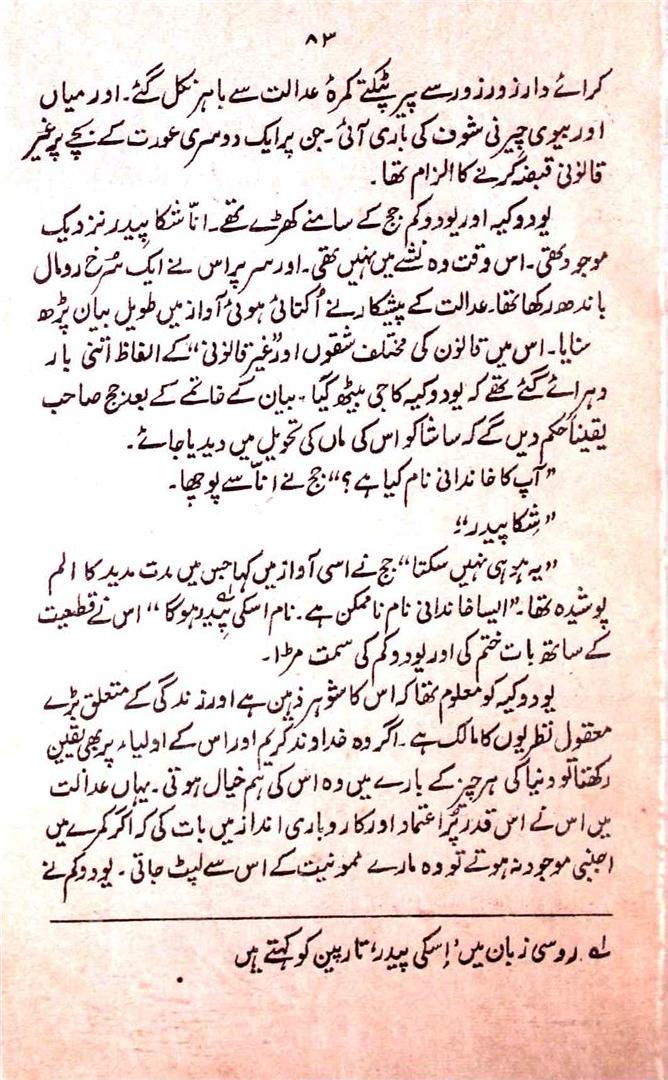 ۸۳
کرائے دار زور زور سے پیر پٹکتے کمرۂ عدالت سے باہر نکل گئے۔ اور میاں
اور بیوی چیرنی شوف کی باری آئی۔ جن پر ایک دوسری عورت کے بچے پر غیر
قانونی قبضہ کرنے کا الزام تھا۔
یودوکیہ اور یودوکم جج کے سامنے کھڑے تھے۔ انّا شکا پیدر نزدیک
موجود تھی۔ اس وقت وہ نشے میں نہیں تھی۔ اور سر پر اس نے ایک سُرخ رومال
باندھ رکھا تھا۔ عدالت کے پیشکار نے اُکتائی ہوئی آواز میں طویل بیان پڑھ
سنایا۔ اس میں قانون کی مختلف شقوں اور ”غیر قانونی“ کے الفاظ اتنی بار
دہرائے گئے تھے کہ یودوکیہ کا جی بیٹھ گیا۔ بیان کے خاتمے کے بعد جج صاحب
یقیناً حکم دیں گے کہ ساشا کو اس کی ماں کی تحویل میں دیدیا جائے۔
”آپ کا خاندانی نام کیا ہے؟“ جج نے انّا سے پوچھا۔
”شِکا پیدر“؛
”یہ ہو ہی نہیں سکتا“ جج نے اسی آواز میں کہا جس میں مدت مدید کا الم
پوشیدہ تھا۔ ”ایسا خاندانی نام ناممکن ہے۔ نام اسکی پیدر ہوگا“ ؂۱ اس نے قطعیت
کے ساتھ بات ختم کی اور یودوکم کی سمت مڑا۔
یودوکیہ کو معلوم تھا کہ اس کا شوہر ذہین ہے اور زندگی کے متعلق بڑے
معقول نظریوں کا مالک ہے۔ اگر وہ خداوند کریم اور اس کے اولیاء پر بھی یقین
رکھتا تو دنیا کی ہر چیز کے بارے میں وہ اس کی ہم خیال ہوتی۔ یہاں عدالت
میں اس نے اس قدر پُراعتماد اور کاروباری انداز میں بات کی کہ اگر کمرے میں
اجنبی موجود نہ ہوتے تو وہ مارے ممونیت کے اس سے لپٹ جاتی۔ یودوکم نے
؂۱ روسی زبان میں ’اِسکی پیدر‘ تارپین کو کہتے ہیں